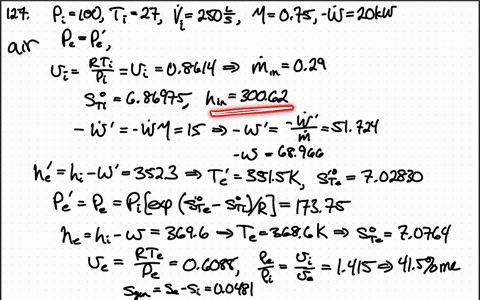 127. Pi=100, Ti=27, V̇i=250 L/s, η=0.75, -Ẇ=20kW
air Pe=Pe',
υi = RTi/Pi = υi = 0.8614 ⇒ ṁin = 0.29
S°Ti = 6.86975, hin = 300.62
-Ẇ' = -Ẇη = 15 ⇒ -W' = -Ẇ'/ṁ = 51.724
-W = 68.966
he' = hi - W' = 352.3 → Te' = 351.5K, S°Te = 7.02830
Pe' = Pe = Pi[exp(S°Te - S°Ti)/R] = 173.75
he = hi - W = 369.6 → Te = 368.6K ⇒ S°Te = 7.0764
υe = RTe/Pe = 0.6088, ρe/ρi = υi/υe = 1.415 ⇒ 41.5% inc
Sgen = Se - Si = 0.0481